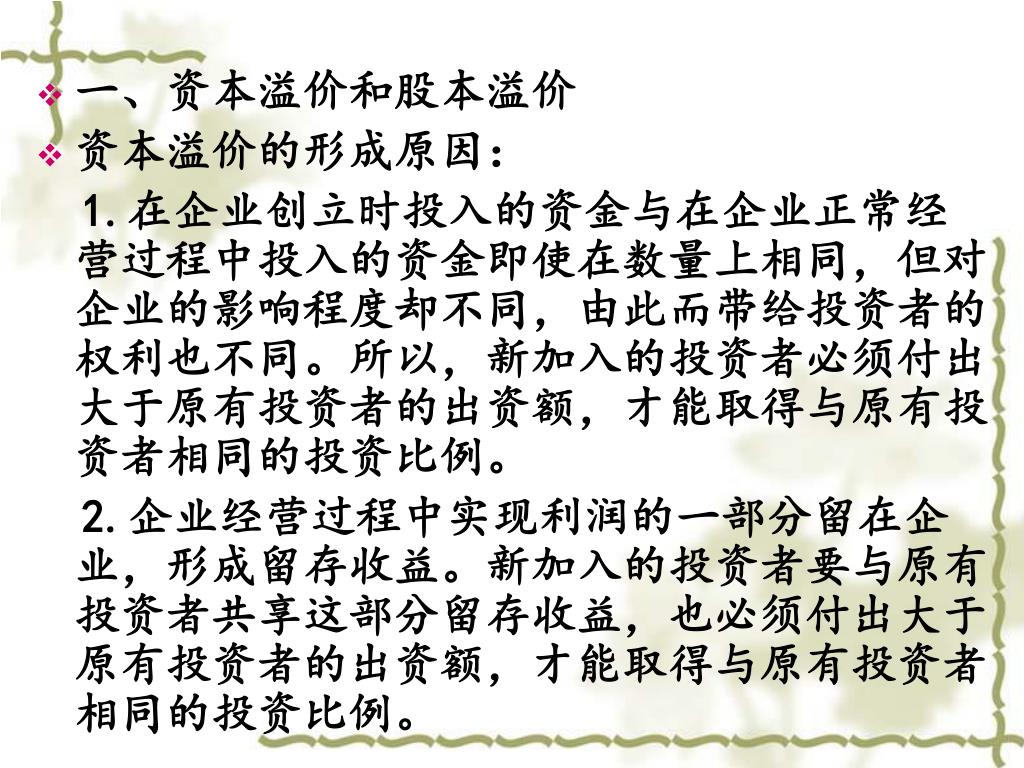 一、资本溢价和股本溢价
资本溢价的形成原因：
1.在企业创立时投入的资金与在企业正常经
营过程中投入的资金即使在数量上相同，但对
企业的影响程度却不同，由此而带给投资者的
权利也不同。所以，新加入的投资者必须付出
大于原有投资者的出资额，才能取得与原有投
资者相同的投资比例。
2.企业经营过程中实现利润的一部分留在企
业，形成留存收益。新加入的投资者要与原有
投资者共享这部分留存收益，也必须付出大于
原有投资者的出资额，才能取得与原有投资者
相同的投资比例。